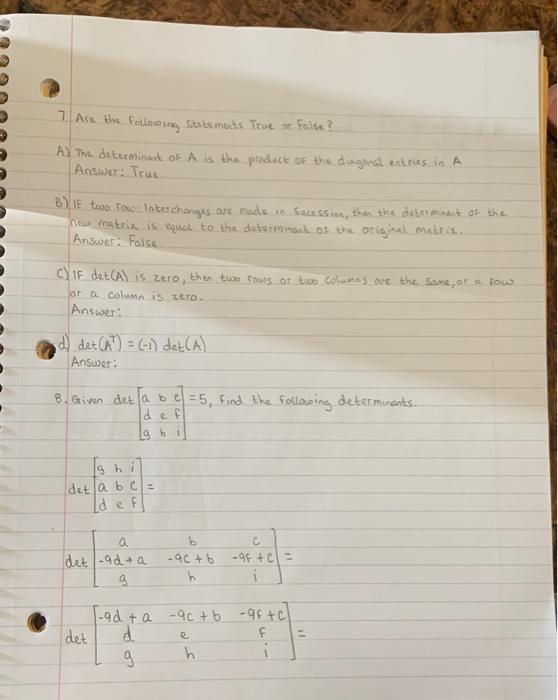 7. Are the Following Statements True or False?
A) The determinant of A is the product of the diagonal entries in A
Answer: True.
B) IF two row Interchanges are made in Sucession, then the determinant of the
new matrix is equal to the determinant of the original matrix.
Answer: False
C) IF det(A) is zero, then two rows or two columns are the same, or a row
or a column is zero.
Answer:
d) det(Aᵀ) = (-1) det(A)
Answer:
8. Given det [a b c] = 5, find the following determinants.
[d e f]
[g h i]
[g h i]
det [a b c] =
[d e f]
[a b c]
det [-9d+a -9c+b -9f+c] =
[g h i]
[-9d+a -9c+b -9f+c]
det [d e f] =
[g h i]